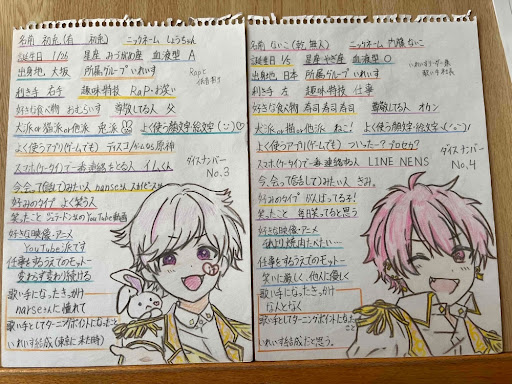 名前 初兎(有 初兎) ニックネーム しょうちゃん
誕生日 1/26 星座 みずがめ座 血液型 A
出身地 大阪 所属グループ いれいす
利き手 右手 趣味特技 Rap・お笑い
好きな食べ物 おむらいす 尊敬してる人 父
犬派or猫派or他派 兎派 よく使う顔文字・絵文字
よく使うアプリ(ゲームでも) ディスコ/かなら原神
スマホ(ケータイ)で一番連絡をとる人 イムくん
今、会って(話して)みたい人 nanseさん
好みのタイプ よく笑う人
笑ったこと ジェラードンさんのYouTube動画
好きな映像・アニメ
YouTube派です
仕事をするうえでのモットー
変わらず変わり続ける
歌い手になったきっかけ
nanseさんに憧れて
歌い手としてターニングポイントになったこと
いれいす結成(東京に来た時)
ダイスナンバー
No.3
名前 ないこ(乾 無人) ニックネーム 内藤ないこ
誕生日 1/5 星座 やぎ座 血液型 O
出身地 日本 所属グループ いれいす
いれいすリーダー兼
歌い手社長
利き手 左 趣味特技 仕事
好きな食べ物 寿司寿司寿司 尊敬してる人 オカン
犬派or猫派or他派 ねこ! よく使う顔文字・絵文字
よく使うアプリ(ゲームでも) ついった?プロセカ?
スマホ(ケータイ)で一番連絡する人 LINE NENS
今、会って(話して)みたい人 きみ。
好みのタイプ がんばってる子!
笑ったこと 毎日笑ってると思う
好きな映像・アニメ
それより焼肉たべたい…
仕事をするうえでのモットー
笑いに厳しく、他人に優しく
歌い手になったきっかけ
なんとなく
歌い手としてターニングポイントになったこと
いれいす結成だと思う。
ダイスナンバー
No.4